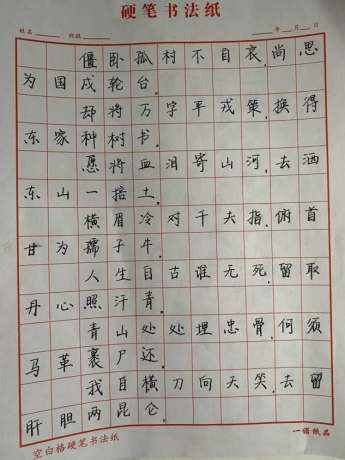 硬笔书法纸
姓名 班级 年 月 日
僵卧孤村不自哀,尚思
为国戍轮台.
却将万字平戎策,换得
东家种树书.
愿将血泪寄山河,去洒
东山一掊土.
横眉冷对千夫指,俯首
甘为孺子牛.
人生自古谁无死,留取
丹心照汗青.
青山处处埋忠骨,何须
马革裹尸还.
我自横刀向天笑,去留
肝胆两昆仑.
空白格硬笔书法纸 一诺纸品